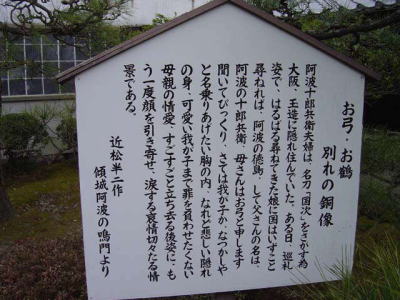 お弓・お鶴
別れの銅像
阿波十郎兵衛夫婦は、名刀「国次」をさがす為
大阪、玉造に隠れ住んでいた。ある日、巡礼
姿で、はるばる尋ねてきた娘に国はいずこと
尋ねれば、阿波の徳島、して父さんの名は、
阿波の十郎兵衛、母さんはお弓と申します
聞いてびっくり、さては我が子か、なつかしや
と名乗りあげたい胸の内、なれど悲しい隠れ
の身、可愛い我が子まで罪を負わせたくない
母親の情愛、すごすごと立ち去る後姿に、も
う一度顔を引き寄せ、涙する哀情切々たる情
景である。
近松半二作
傾城阿波の鳴門より